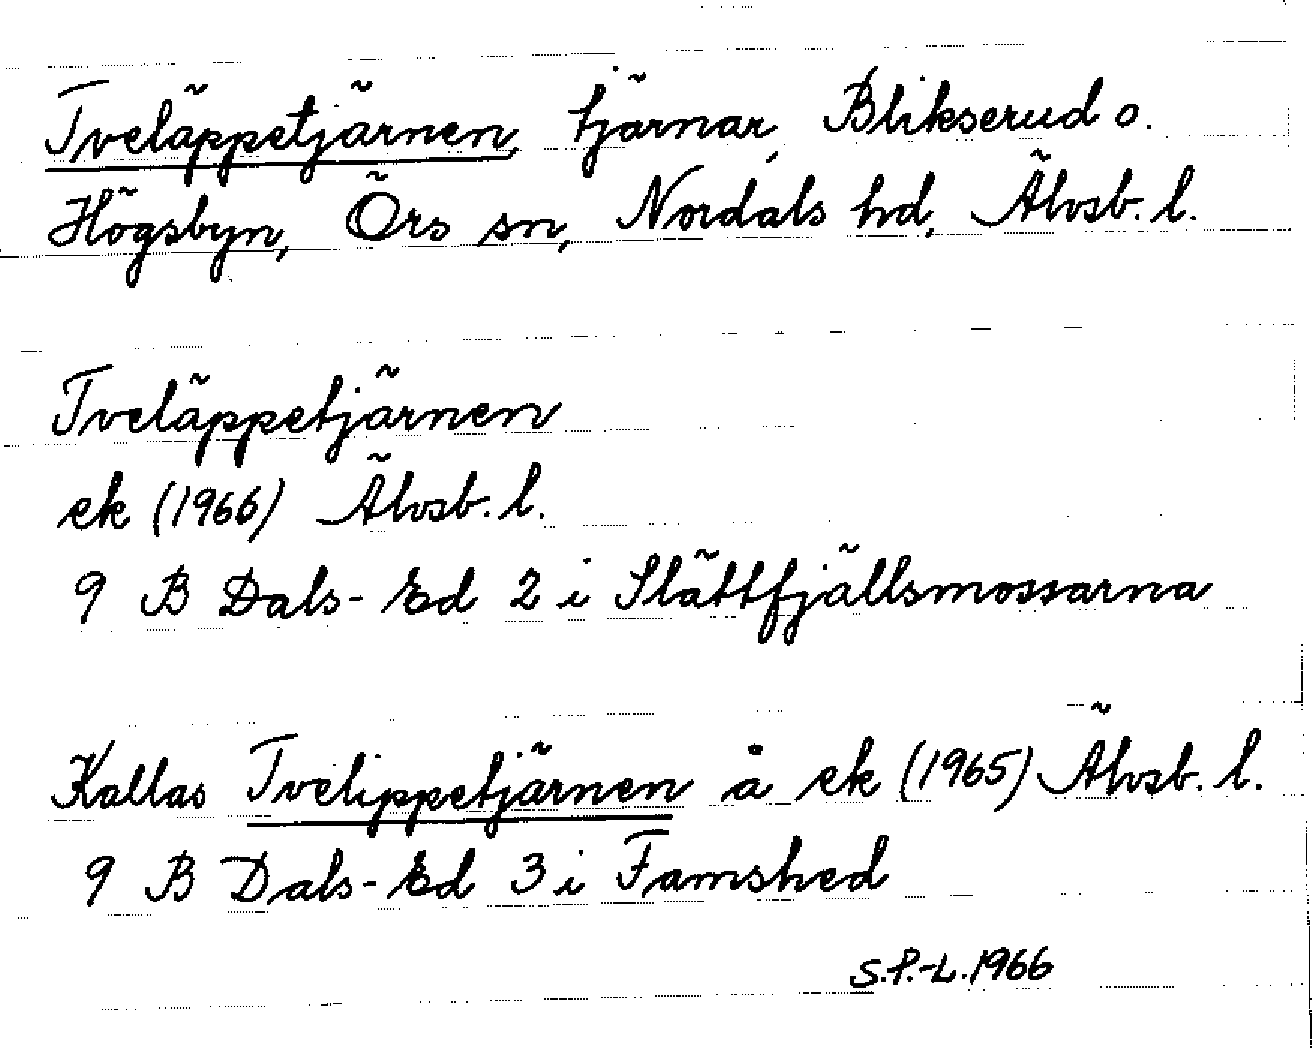 Tveläppetjärnen, tjärnar, Blikserud o.
Högsbyn, Örs sn, Nordals hd, Älvsb. l.
Tveläppetjärnen
ek (1966) Älvsb. l.
9 B Dals-Ed 2 i Slättfjällsmossarna
Kallas Tvelippetjärnen å ek (1965) Älvsb. l.
9 B Dals-Ed 3 i Famshed
S.P.-L. 1966